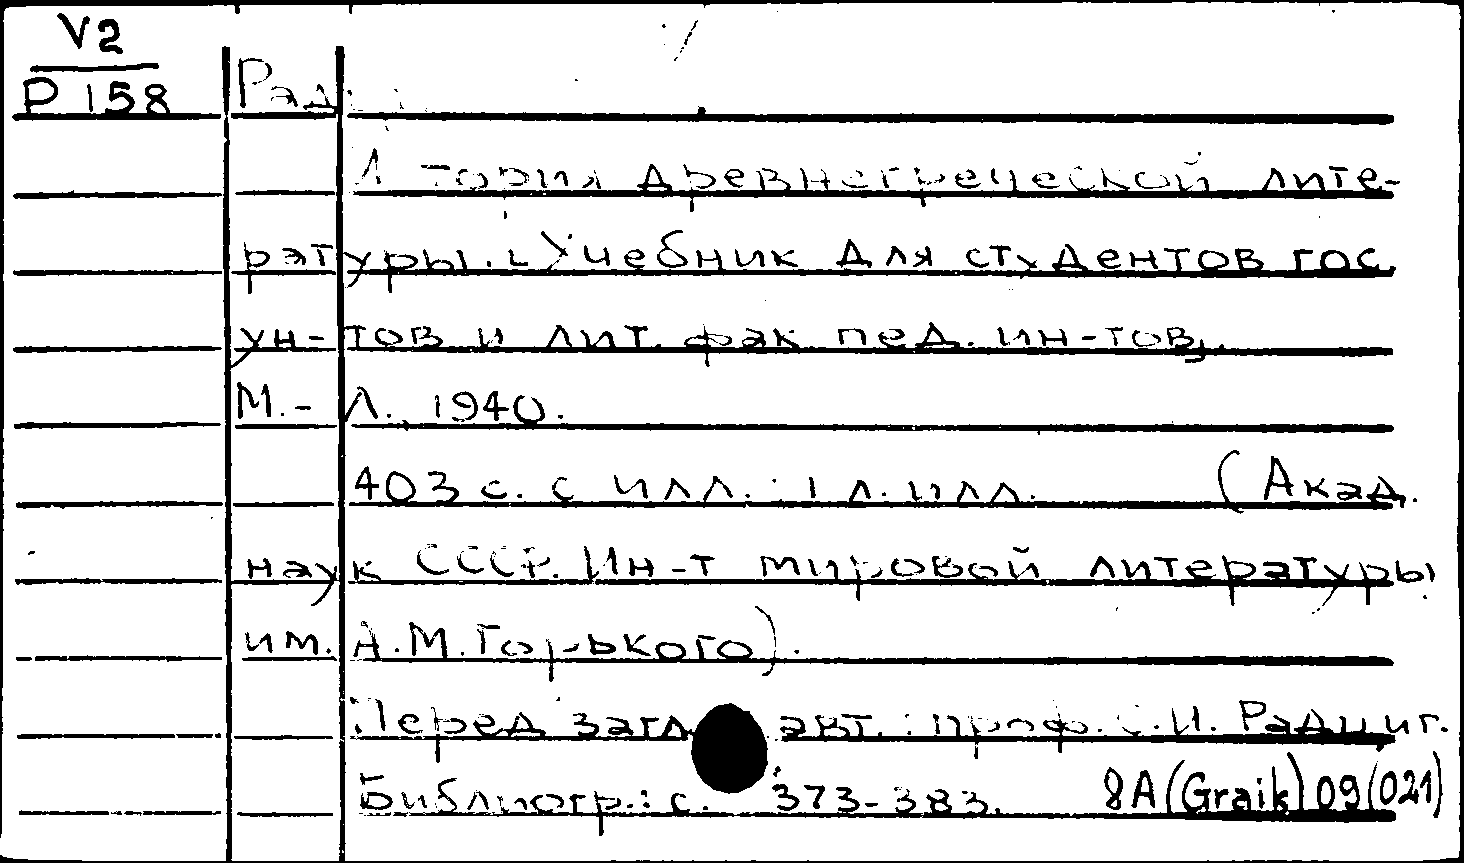 V2
Р158
Рад
История древнегреческой лите-
ратуры. [Учебник для студентов гос.
ун-тов и лит. фак. пед. ин-тов].
М.-Л., 1940.
403 с. с илл.; 1 л. илл. (Акад.
наук СССР. Ин-т мировой литературы
им. А.М.Горького).
Перед загл. авт.: проф. С.И. Радциг.
Библиогр.: с. 373-383. 8А(Graik)09(021)